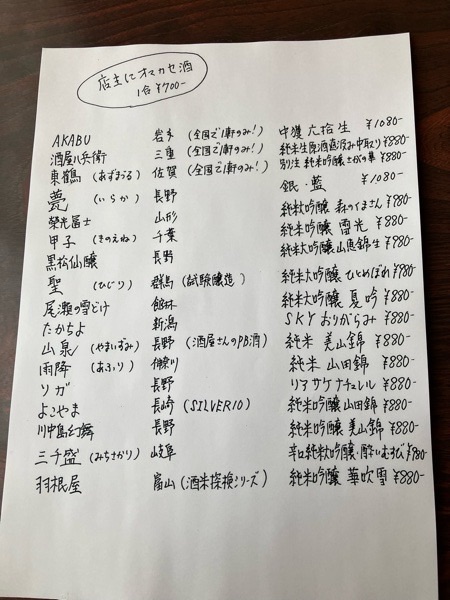 店主にオマカセ酒
1合 ¥700-
AKABU 岩手 (全国で1軒のみ!) 中獲 六拾 生 ¥1080-
酒屋八兵衛 三重 (全国で1軒のみ!) 純米生原酒直汲み中取り ¥880-
東鶴 (あずまづる) 佐賀 (全国で1軒のみ!) 別注 純米吟醸 さがの華 ¥880-
甍 (いらか) 長野 銀・藍 ¥1080-
榮光冨士 山形 純米大吟醸 森のくまさん ¥980-
甲子 (きのえね) 千葉 純米吟醸 雷光 ¥880-
黒松仙醸 長野 純米大吟醸 山恵錦生 ¥980-
聖 (ひじり) 群馬 (試験醸造) 純米大吟醸 ひとめぼれ ¥980-
尾瀬の雪どけ 館林 純米大吟醸 夏吟 ¥880-
たかちよ 新潟 SKY おりがらみ ¥880-
山泉 (やまいずみ) 長野 (酒屋さんのPB酒) 純米 美山錦 ¥880-
雨降 (あふり) 神奈川 純米 山田錦 ¥880-
ソガ 長野 リアサケナチュレル ¥880-
よこやま 長崎 (SILVER10) 純米吟醸 山田錦 ¥880-
川中島幻舞 長野 純米吟醸 美山錦 ¥880-
三千盛 (みちさかり) 岐阜 辛口純米大吟醸・酔いむすび ¥780-
羽根屋 富山 (酒米探検シリーズ) 純米吟醸 華吹雪 ¥880-